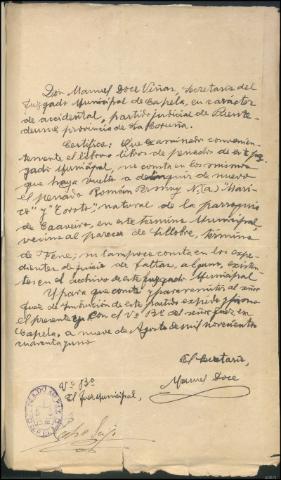 Don Manuel Doce Viñas, Secretario del
Juzgado Municipal de Capela, en carácter
de accidental, partido judicial de Puente-
deume, provincia de La Coruña.
Certifico: Que examinado convenien-
temente el libro o libros de penados de este Juz-
gado Municipal, no consta en los mismos
que haya vuelto a delinquir de nuevo
el penado Román
y natural de la parroquia
de Caaveiro, en este término Municipal,
vecino al parecer de Sillobre, término
de Fene; ni tampoco consta en los expe-
dientes de juicio de faltas, alguno, existen-
tes en el archivo de este Juzgado Municipal.
Y para que conste y para remitir al señor
Juez de de este partido expido y firmo
el presente con el Vº Bº del señor Juez en
Capela, a nueve de Agosto de mil novecientos
cuarenta y uno.
El Secretario,
Vº Bº
El Juez Municipal,
Manuel Doce